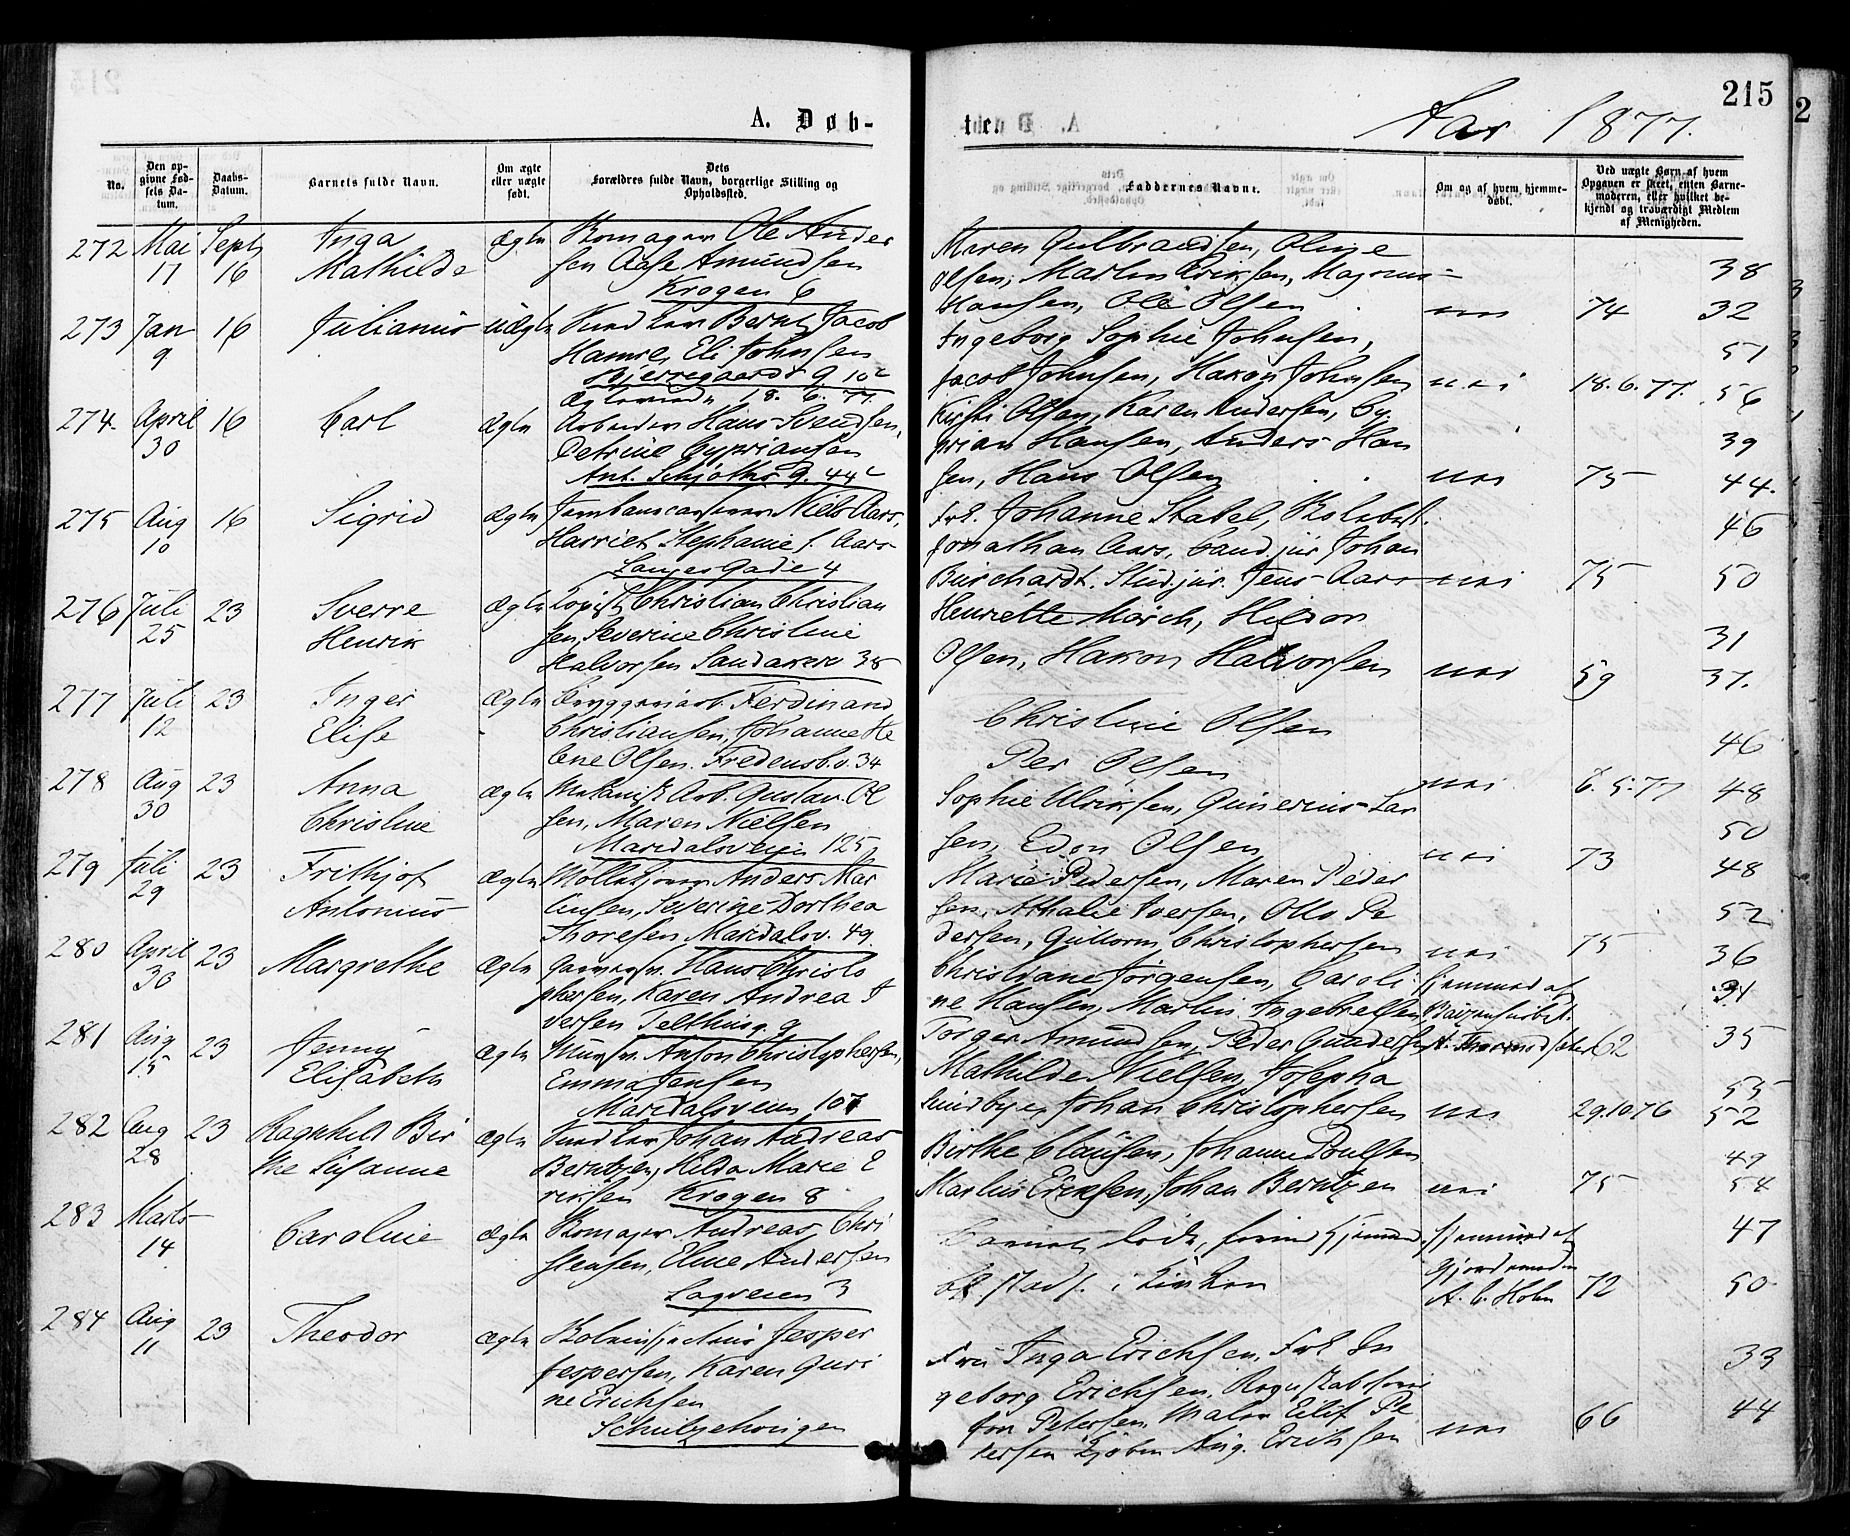 215
A. Døb-
Aar 1877.
No.
Den opgivne Fødsels Datum.
Daabs-Datum.
Barnets fulde Navn.
Om ægte eller uægte født.
Dets Forældres fulde Navn, borgerlige Stilling og Opholdssted.
Faddernes Navne.
Om og af hvem hjemmedøbt.
Ved uægte Børn af hvem Opgaven er skeet, enten Barnemoderen, eller hvilket bekjendt og troværdigt Medlem af Menigheden.
272 Mai 17 Septr 16 Inga Mathilde ægte Skomager Ole Ander
sen Aase Amundsen
Krogen 6
Maren Gulbrandsen, Oline
Olsen, Martin Eriksen, Magnus
Hansen, Ole Olsen nei 74 38 32
273 Jan 9 16 Julianus uægte Bernt Jacob
Eli Johnsen
Bjerregaards g. 10c
18. 6. 77.
Ingeborg Sophie Johnsen,
Jacob Johnsen, Hakon Johnsen nei 18.6.77. 51 56
274. April 30 16 Carl ægte Arbeider Hans Svendsen,
Petrine Cypriansen
Ant. Schjøths g. 44c
Kirsti Olsen, Karen Andersen, Cy
prian Hansen, Anders Han
sen, Hans Olsen nei 75 39 44.
275 Aug 10 16 Sigrid ægte Niels Aars,
Harriet Stephanie f. Aars
Langes Gade 4
Frk. Johanne Stabel,
Jonathan Aars, Cand. jur. Johan
Burchardt. Stud. jur. Jens Aars nei 75 46 50
276 Juli 25 23 Sverre Henrik ægte Kopist Christian Christian
sen, Severine Christine
Halvorsen Sandakerv 38
Henriette Mørch, Hildor
Olsen, Hakon Halvorsen nei 59 31 37.
277 Juli 12 23 Inger Elise ægte Bryggeriarb. Ferdinand
Christiansen, Johanne He
lene Olsen. Fredensb.v. 34
Christine Olsen
Per Olsen nei 6.5.77 46 48
278 Aug 30 23 Anna Christine ægte Mekanisk Arb. Gustav Ol
sen, Maren Nielsen
Maridalsveien 125
Sophie Ulriksen, Gunerius Lar
sen, Edon Olsen nei 73 50 48
279 Juli 29 23 Frithjof Antonius ægte Anders Mar
tinsen, Severine Dorthea
Thoresen Maridalsv. 49
Marie Pedersen, Maren Peder
sen, Athalie Iversen, Otto Pe
dersen, Guttorm Christophersen nei 75 52 36
280 April 30 23 Margrethe ægte Garversv. Hans Christo
phersen, Karen Andrea I
versen Telthusg. 9
Christiane Jørgensen, Caroli
ne Hansen, Martin Ingebretsen
Torger Amundsen, Peder Gundersen
hjemmed af
62 31 35
281 Aug 15 23 Jenny Elisabeth ægte Mursv. Anton Christophersen,
Emma Jensen
Maridalsveien 107
Mathilde Nielsen, Josepha
Lundby, Johan Christophersen nei 29.10.76 55 52
282 Aug 28 23 Ragnhild Bir the Susanne ægte Johan Andreas
Berntzen, Hilda Marie E
riksen Krogen 8
Birthe Clausen, Johanne Poulsen
Marlius Eriksen, Johan Berntzen nei 75 49 54
283 Marts 14 23 Caroline ægte Skomager Andreas Chri
stensen, Eline Andersen
Lagveien 3
Barnet døde, førend
stadf. i Kirken
hjemmed af
Gjordemoder
A. C. Holm 72 47 50
284 Aug 11 23 Theodor ægte Jesper
Jespersen, Karen Guri
ne Erichsen
Schultzehougen
Fru Inga Erichsen, Frk In
geborg Erichsen,
Petersen, Maler Eilif Pe
tersen Kjøbm Aug. Erichsen nei 66 33 44